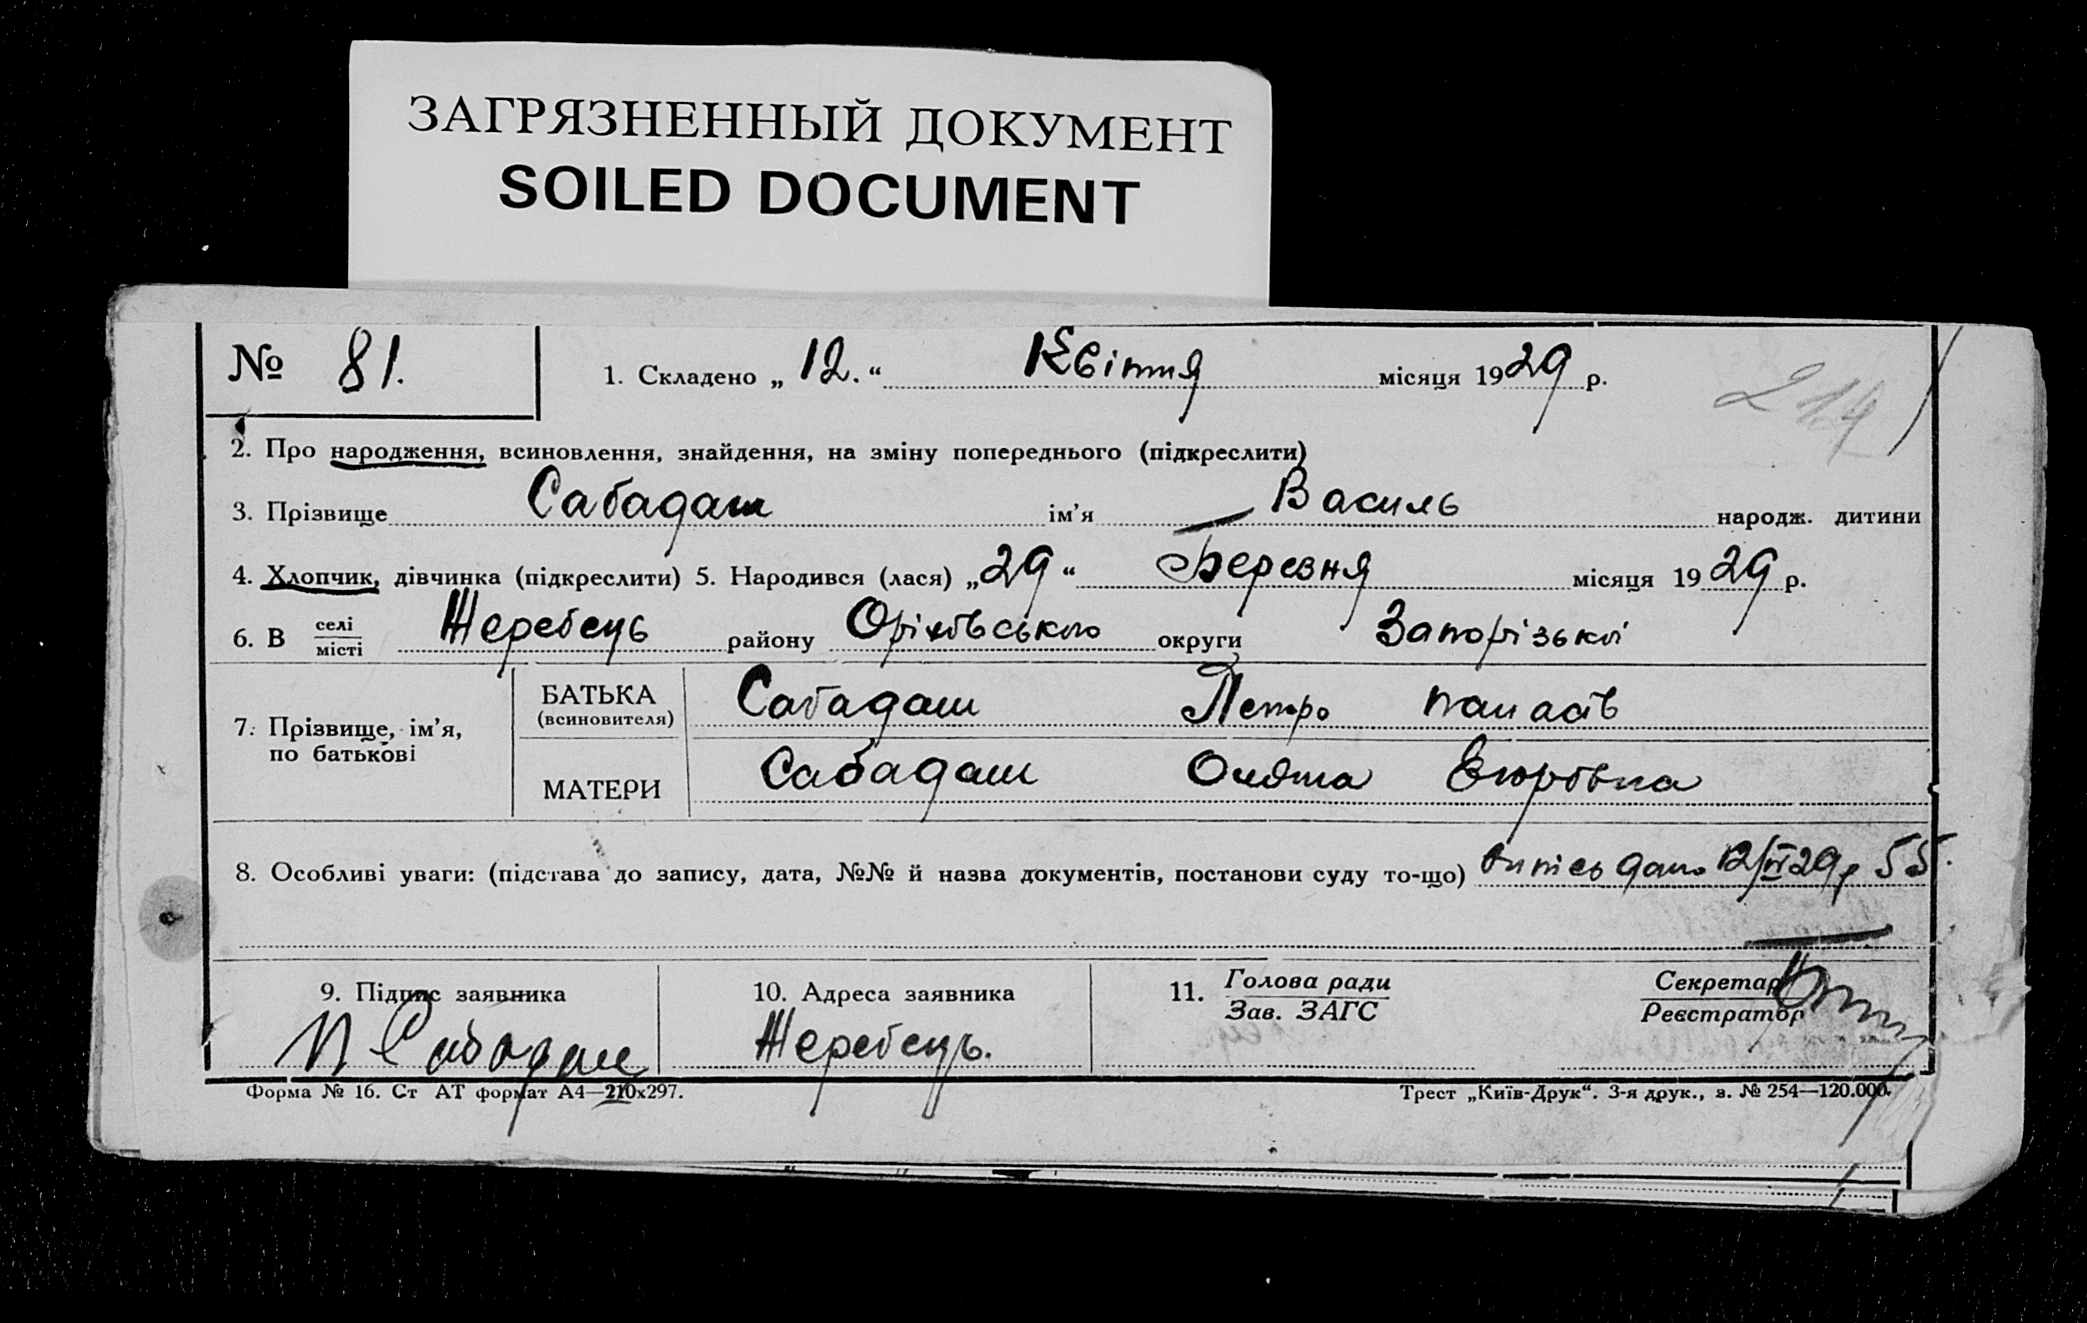 ЗАГРЯЗНЕННЫЙ ДОКУМЕНТ
SOILED DOCUMENT
№ 81. 1. Складено „ 12. “ Квітня місяця 1929 р.
214
2. Про народження, всиновлення, знайдення, на зміну попереднього (підкреслити)
3. Прізвище Сабадаш ім’я Василь народж. дитини
4. Хлопчик, дівчинка (підкреслити) 5. Народився (лася) „29“ Березня місяця 1929 р.
6. В селі/місті Жеребець району Оріхівського округи Запорізької
7. Прізвище, ім’я, по батькові
БАТЬКА (всиновителя) Сабадаш Петро Панасів
МАТЕРИ Сабадаш Егоровна
8. Особливі уваги: (підстава до запису, дата, №№ й назва документів, постанови суду то-що) витісь дано 12/IV 29р 55.
9. Підпис заявника 10. Адреса заявника 11. Голова ради/Зав. ЗАГС Секретар/Реєстратор
П Сабадаш Жеребець.
Форма № 16. Ст АТ формат А4—210х297. Трест „Київ-Друк“. 3-я друк., з. № 254—120.000.